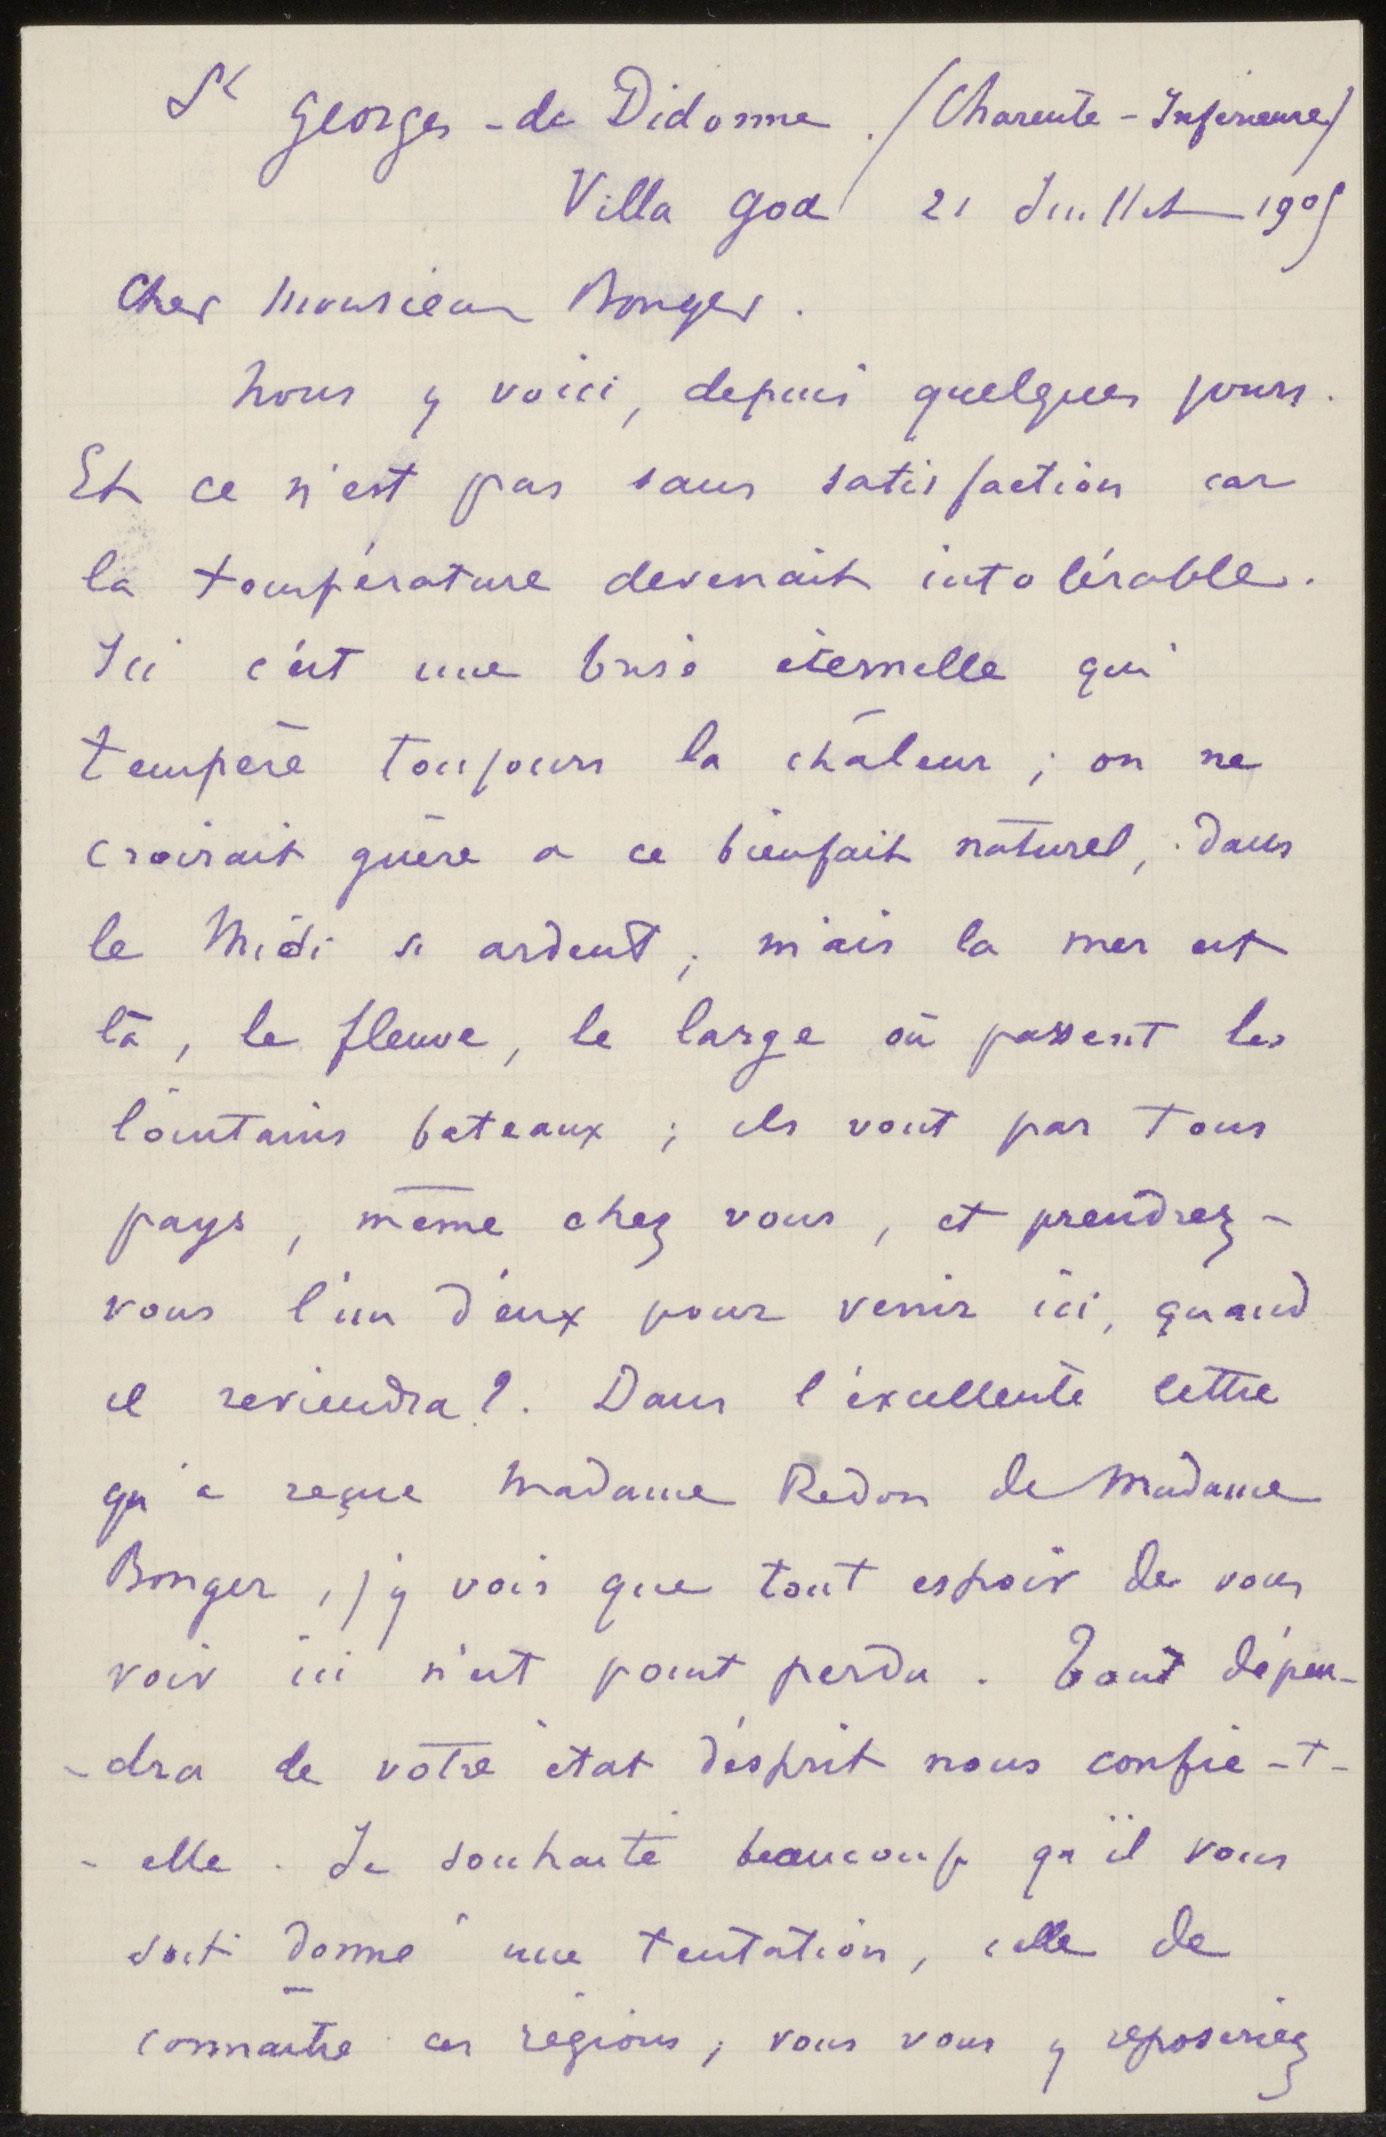 St Georges-de Didonne. (Charente-Inférieure)
Villa Goa 21 Juillet 1905
Cher Monsieur Bonger.
Nous y voici, depuis quelques jours.
Et ce n'est pas sans satisfaction car
la température devenait intolérable.
Ici c'est une brise éternelle qui
tempère toujours la châleur ; on ne
croirait guère a ce bienfait naturel, dans
le Midi si ardent ; mais la mer est
là, le fleuve, le large où passent les
lointains bateaux ; ils vont par tous
pays, même chez vous, et prendrez-
vous l'un d'eux pour venir ici, quand
il reviendra ?. Dans l'éxcellente lettre
qu'a reçue Madame Redon de Madame
Bonger, j'y vois que tout espoir de vous
voir ici n'est point perdu. Tout dépen-
-dra de votre état d'ésprit nous confie-t-
-elle. Je souhaite beaucoup qu'il vous
soit donné une tentation, celle de
connaître ces régions ; vous vous y reposeriez